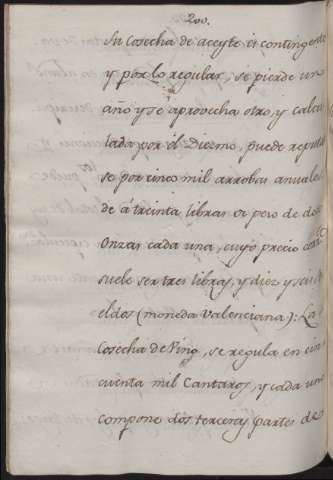 200.
Su cosecha de aceyte es contingente
y por lo regular, se pierde un
año y se aprovecha otro, y calcu
lada por el Diezmo, puede reputar
se por cinco mil arrobas anuales
de á treinta libras de peso de doze
onzas cada una, cuyo precio
suele ser tres libras, y diez y seis
eldos (moneda Valenciana): La
cosecha de Vino, se regula en cin
cuenta mil Cantaros, y cada uno
compone dos terceras partes de